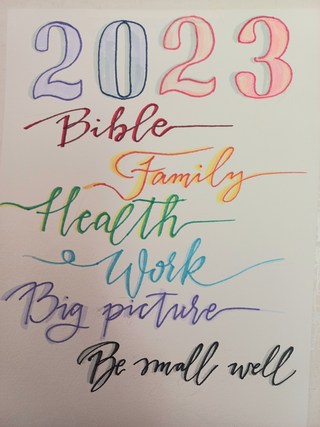 2023
Bible
Family
Health
Work
Big picture
Be small well